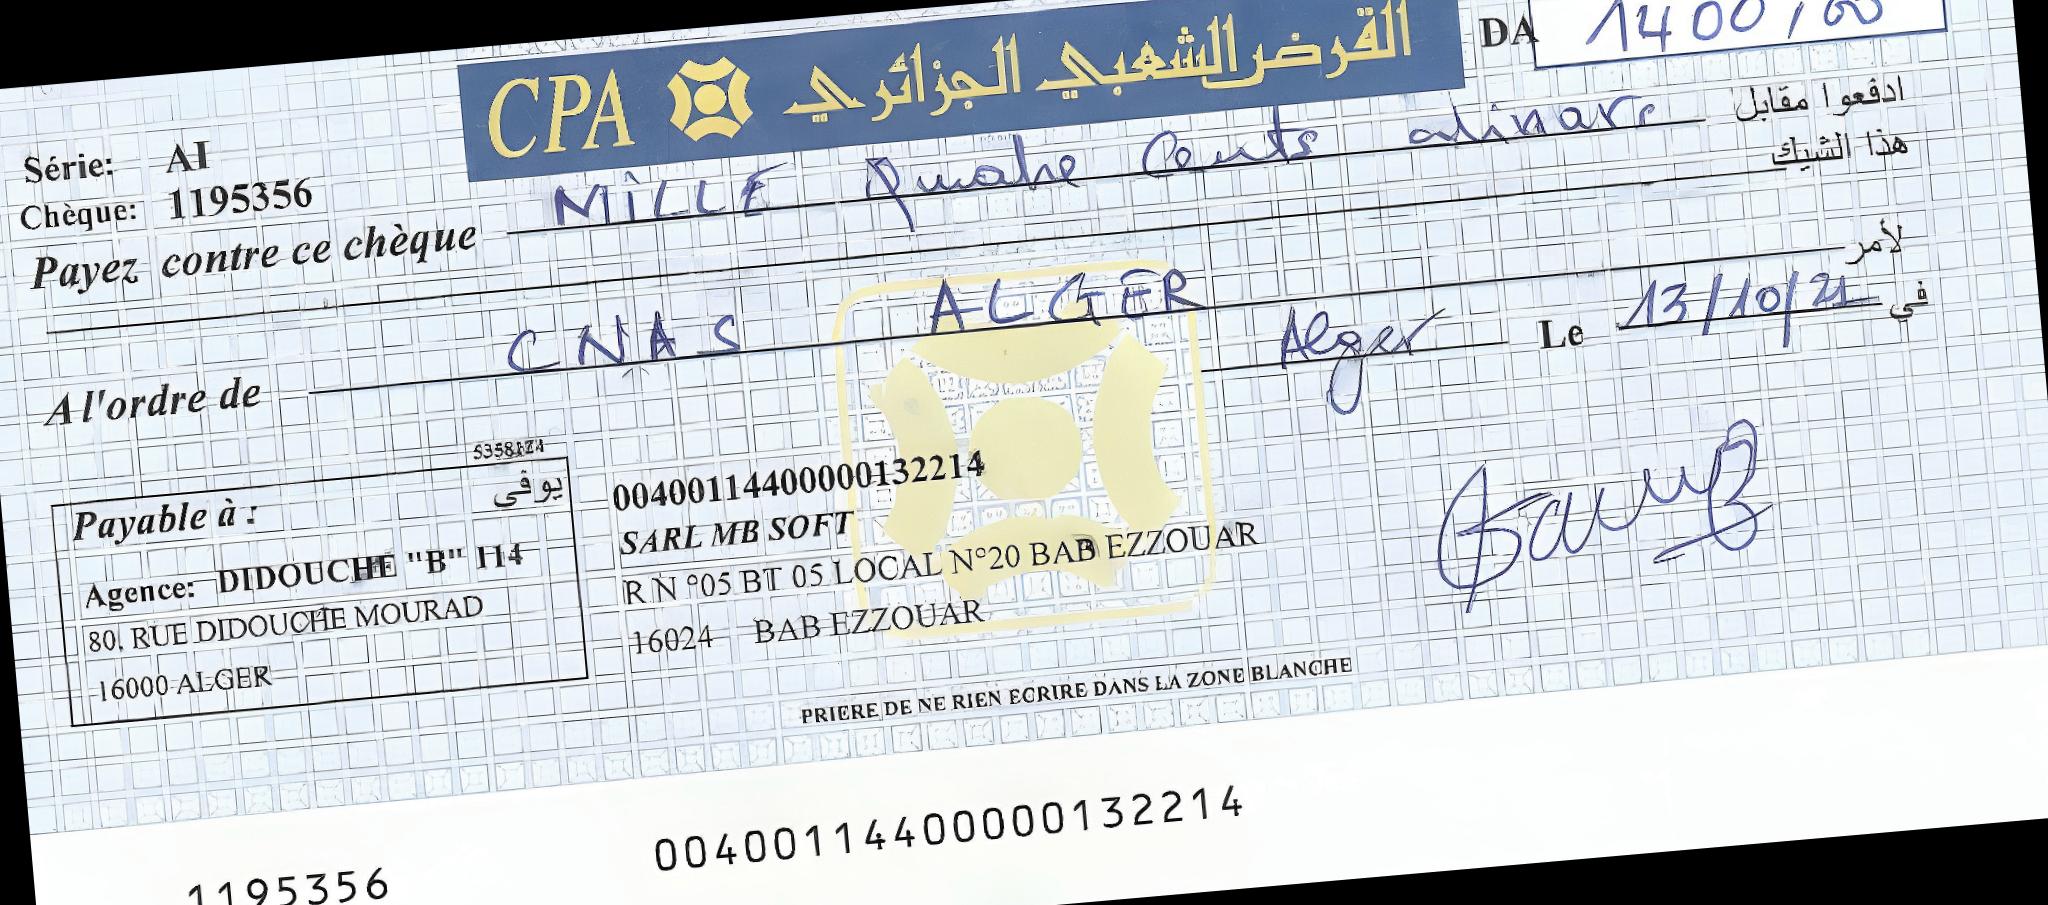 CPA القرض الشعبي الجزائري
DA 1400,00
Série: AI
Chèque: 1195356
ادفعوا مقابل
هذا الشيك
Payez contre ce chèque MILLE quatre Cents dinars
لأمر
A l'ordre de CNAS ALGER
Alger Le 13/10/21 في
Payable à : يوفى
Agence: DIDOUCHE "B" 114
80, RUE DIDOUCHE MOURAD
16000 ALGER
00400114400000132214
SARL MB SOFT
R N °05 BT 05 LOCAL N°20 BAB EZZOUAR
16024 BAB EZZOUAR
PRIERE DE NE RIEN ECRIRE DANS LA ZONE BLANCHE
1195356 00400114400000132214